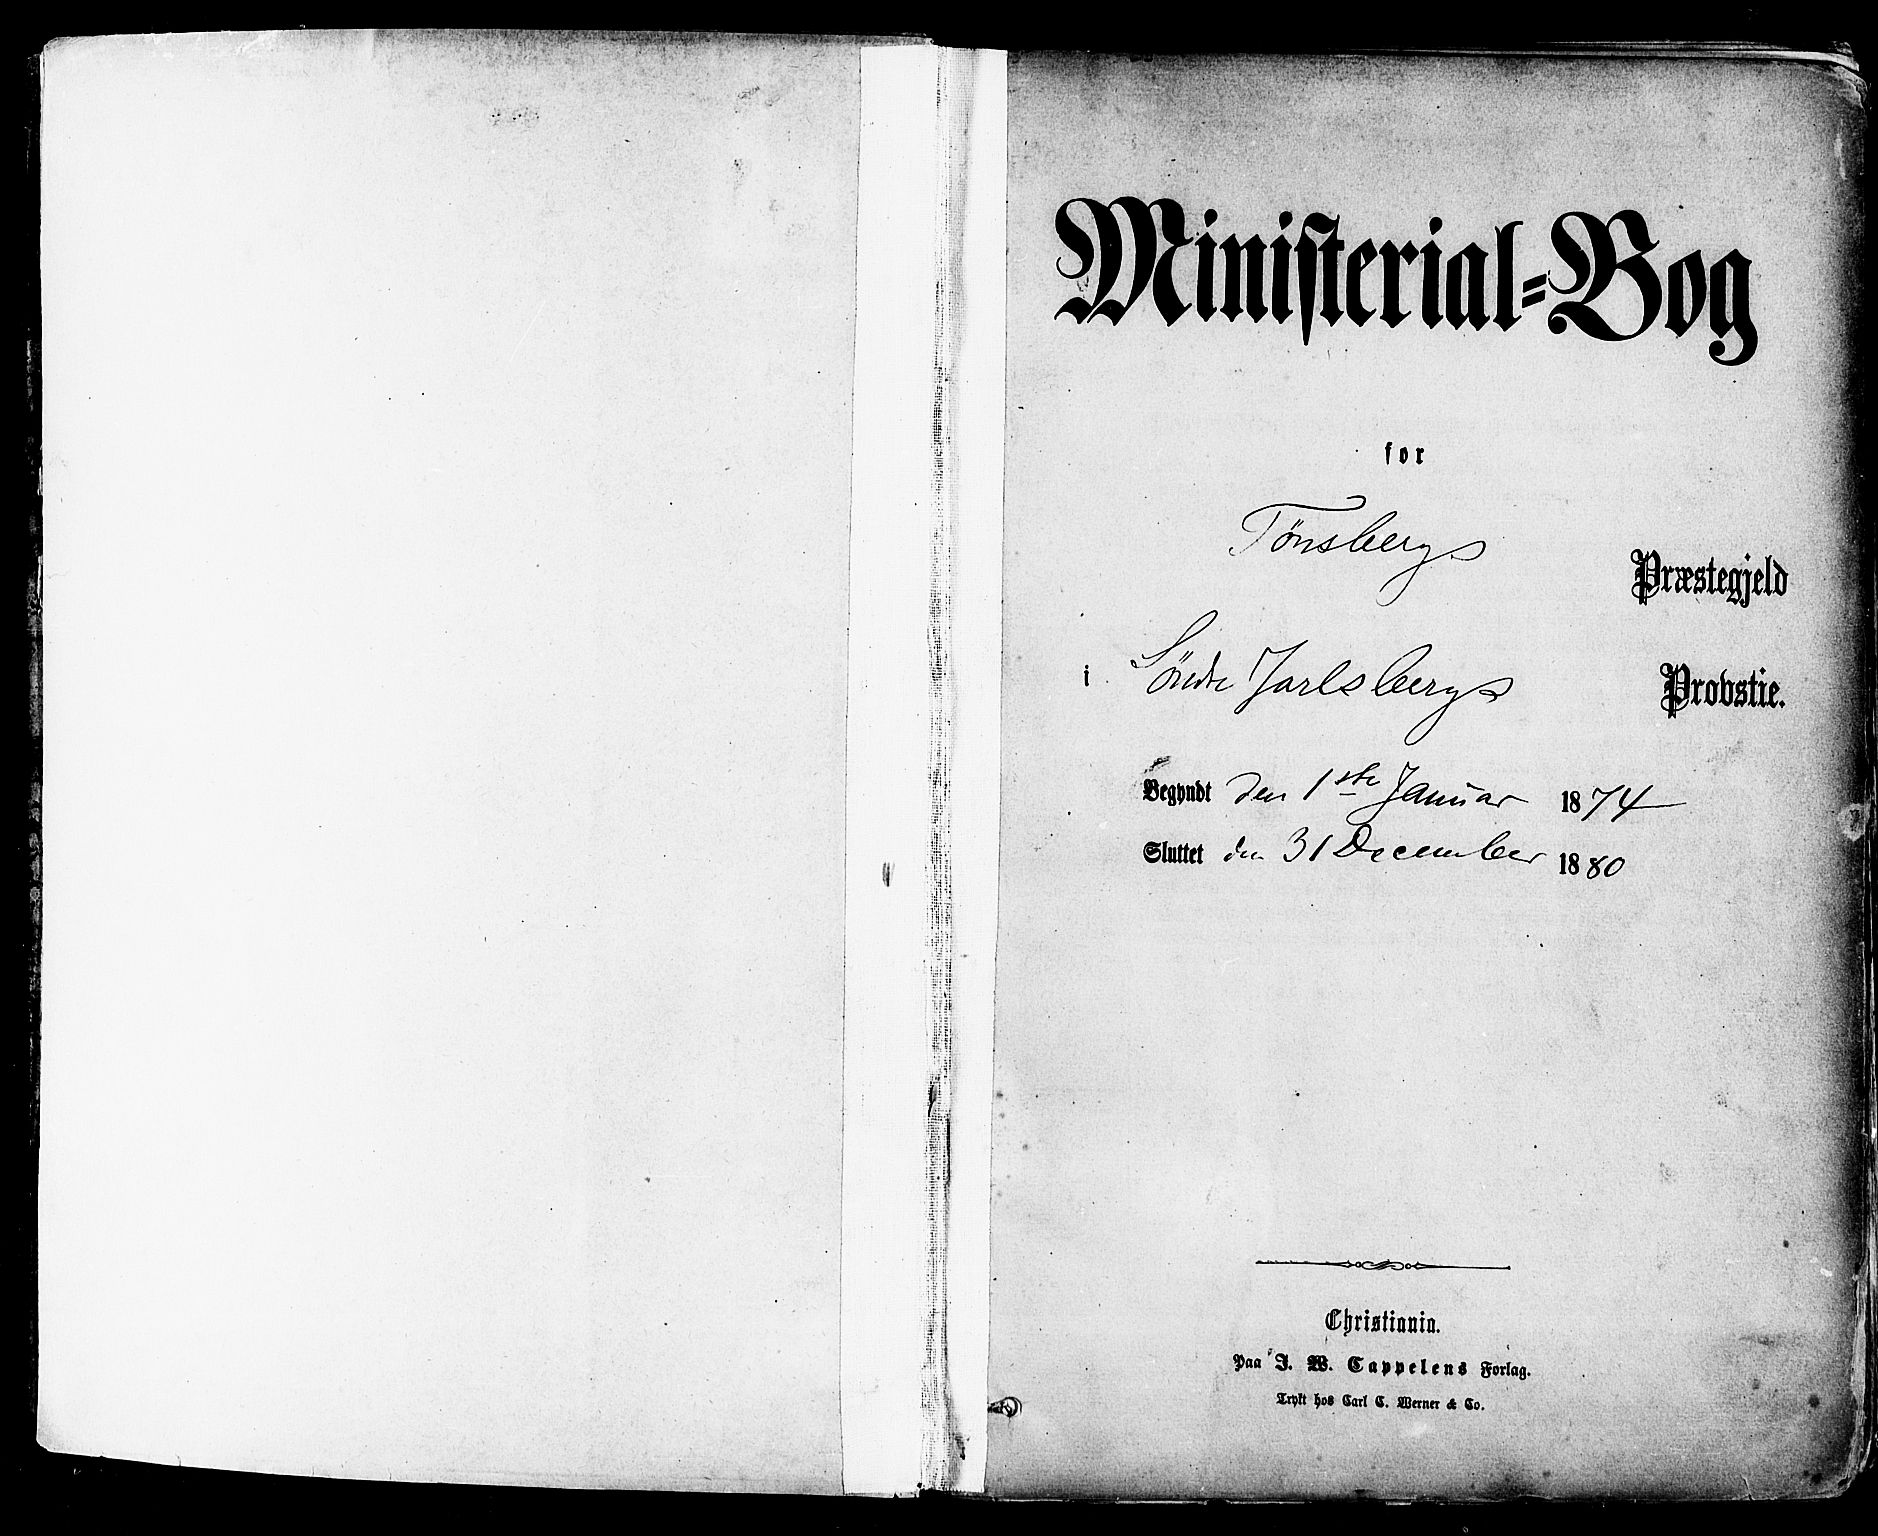 Ministerial-Bog
for
Tönsbergs
Præstegjeld
i Söndre Jarlsbergs Provstie.
Begyndt den 1ste Januar 1874
Sluttet den 31 December 1880
Christiania.
Paa J. W. Cappelens Forlag.
Trykt hos Carl C. Werner & Co.